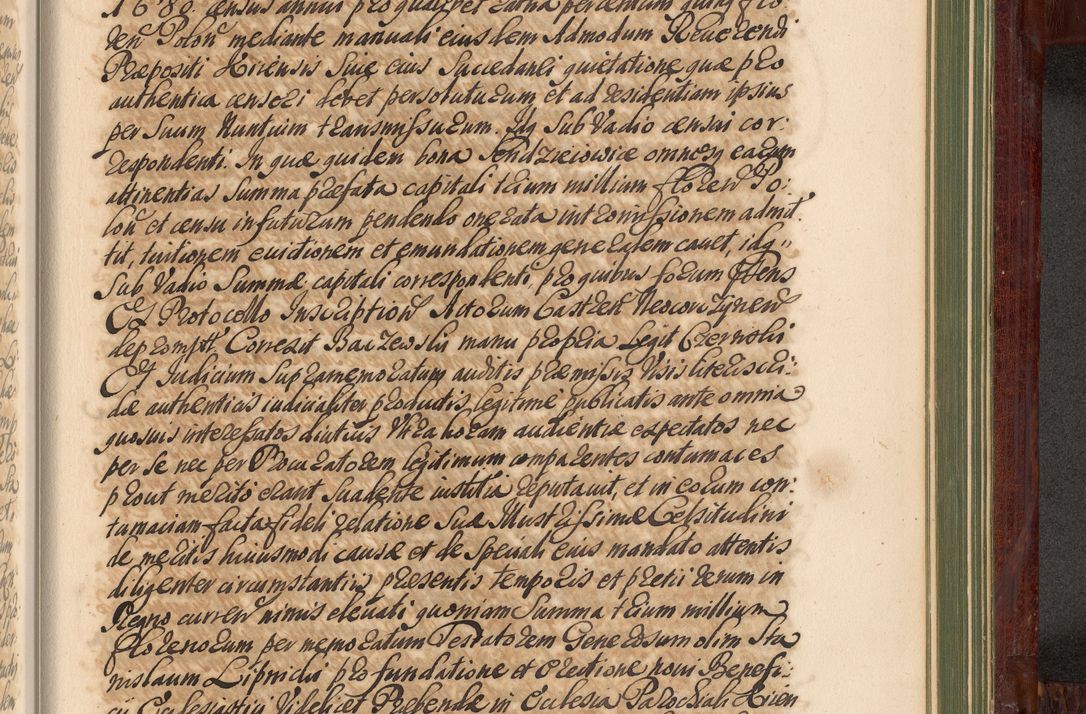 1680. census annui pro qualibet ratha per centum quinq flo
ren Polon mediante manuali eiusdem Admodum Reverendi
Præpositi Hiriensis sive eius Succedanei quietatione quæ pro
authentica censeri debet persoluturum et ad residentiam ipsius
per suum Nuntium transmissurum. Idq sub Vadio censui cor:
respondenti. In quæ quidem bona omnesq earum
attinentias summa præfata capitali trium millium floren Po:
lon et censu in futurum pendendo onerata intromissionem admit:
tit, tuitionem evictionem et emundationem generalem cavet, idq
sub Vadio summæ capitali correspondenti, pro quibus forum
Ex Protocollo Inscription Actorum Castren Neocorczynen
depromptt Correxit Baczewski manu propria Legit Czernolii
Et Judicium supramemoratum auditis præmissis visis literis ceri:
dæ authenticis iudicialiter productis legitime publicatis ante omnia
quosvis interessatos diutius Vltra horam audientiæ expectatos nec
per se nec per Procuratorem legitimum comparentes contumaces
prout merito erant suadente iustitia reputavit, et in eorum con:
tumaciam facta fideli relatione Suæ Illustrissimæ Celsitudini
de meritis huiusmodi causæ et de speciali eius mandato attentis
diligenter circumstantiis præsentis temporis et pretii rerum in
Regno curren nimis elevati, quoniam summa trium millium
florenorum per memoratum Testatorem Generosum olim Sta
nislaum Lipnicki pro fundatione et erectione novi Benefi:
cii Ecclesiastici Videlicet Præbendæ in Ecclesia Parochiali Hirien